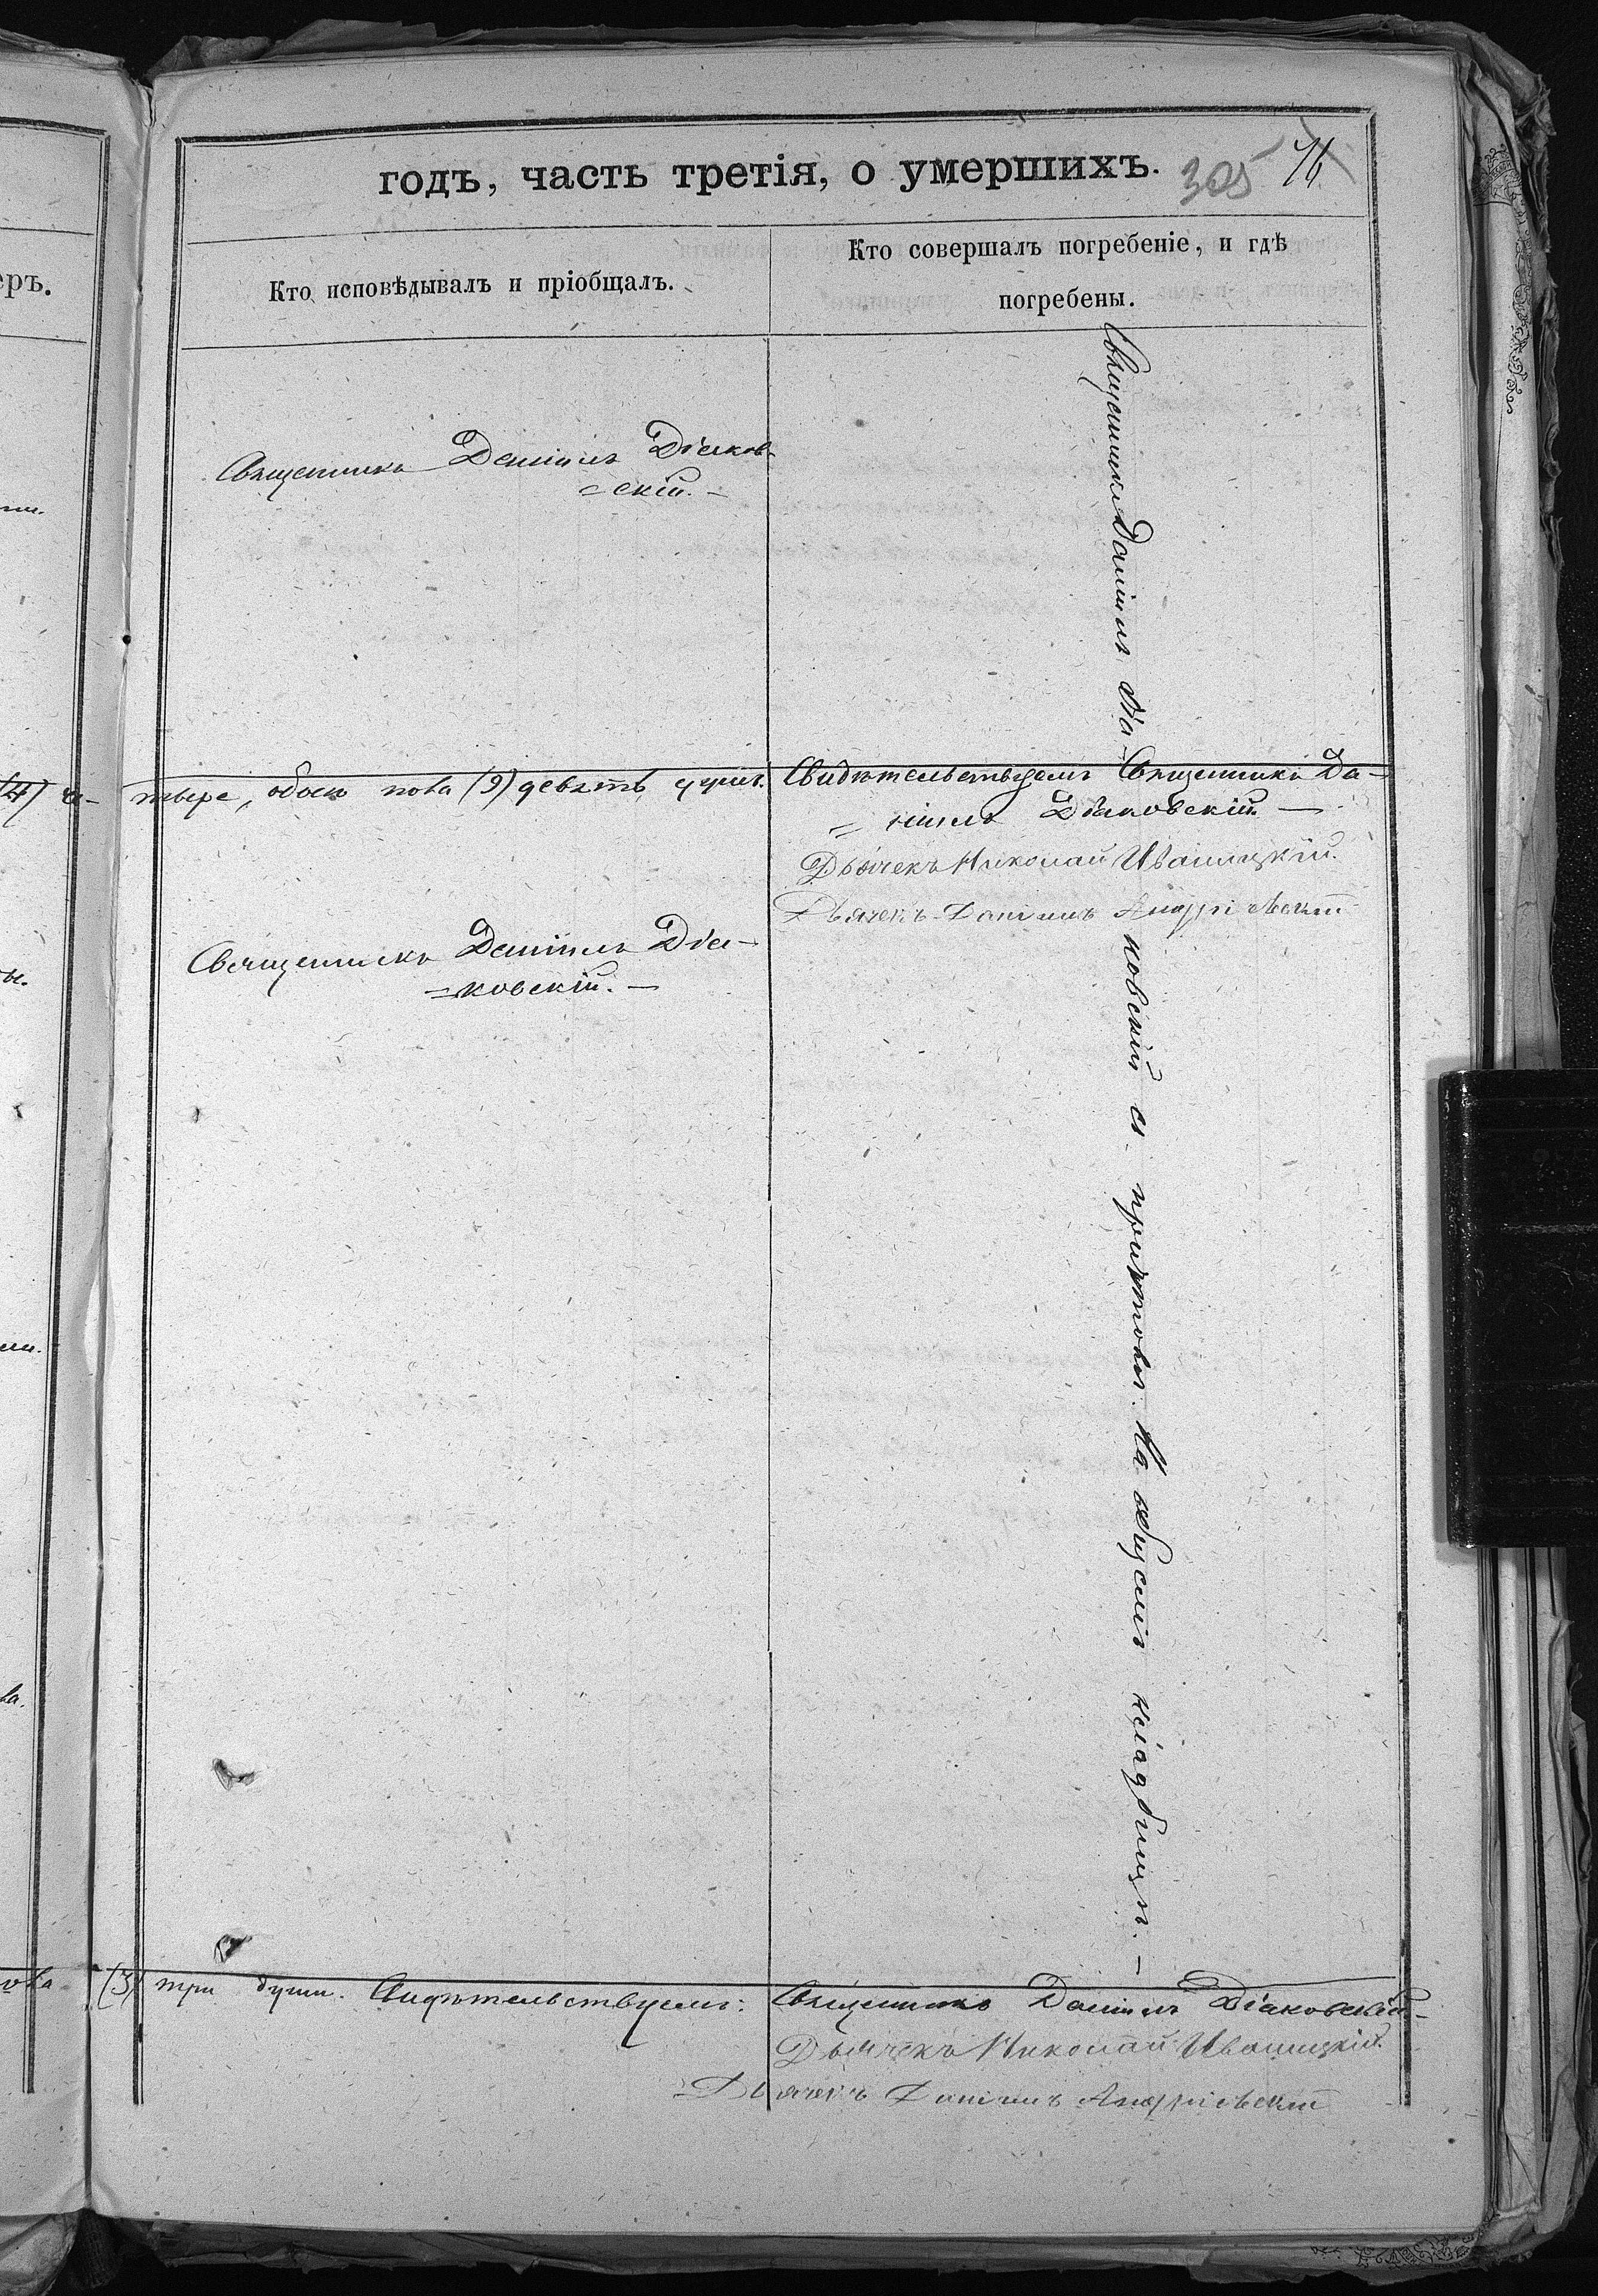 годъ, часть третія, о умершихъ.
305 76
еръ.
Кто исповѣдывалъ и пріобщалъ.
Кто совершалъ погребеніе, и гдѣ
погребены.
Священникъ Даніилъ Діаков-
=скій.-
Священникъ Даніилъ Діа-
ковскій съ причтомъ. На общемъ кладбищѣ.-
(4) че-
тыре, обоего пола (9) девять душъ.
Свидѣтельствуемъ Священникъ Да-
=ніилъ Діаковскій-
Дьячекъ Николай Ивашицкій.
Дьячекъ Даніилъ Андріевскій
Священникъ Даніилъ Діа-
=ковскій.-
(3) три души. Свидѣтельствуемъ:
Священникъ Даніилъ Діаковскій-
Дьячекъ Николай Ивашицкій.
Дьячекъ Даніилъ Андріевскій